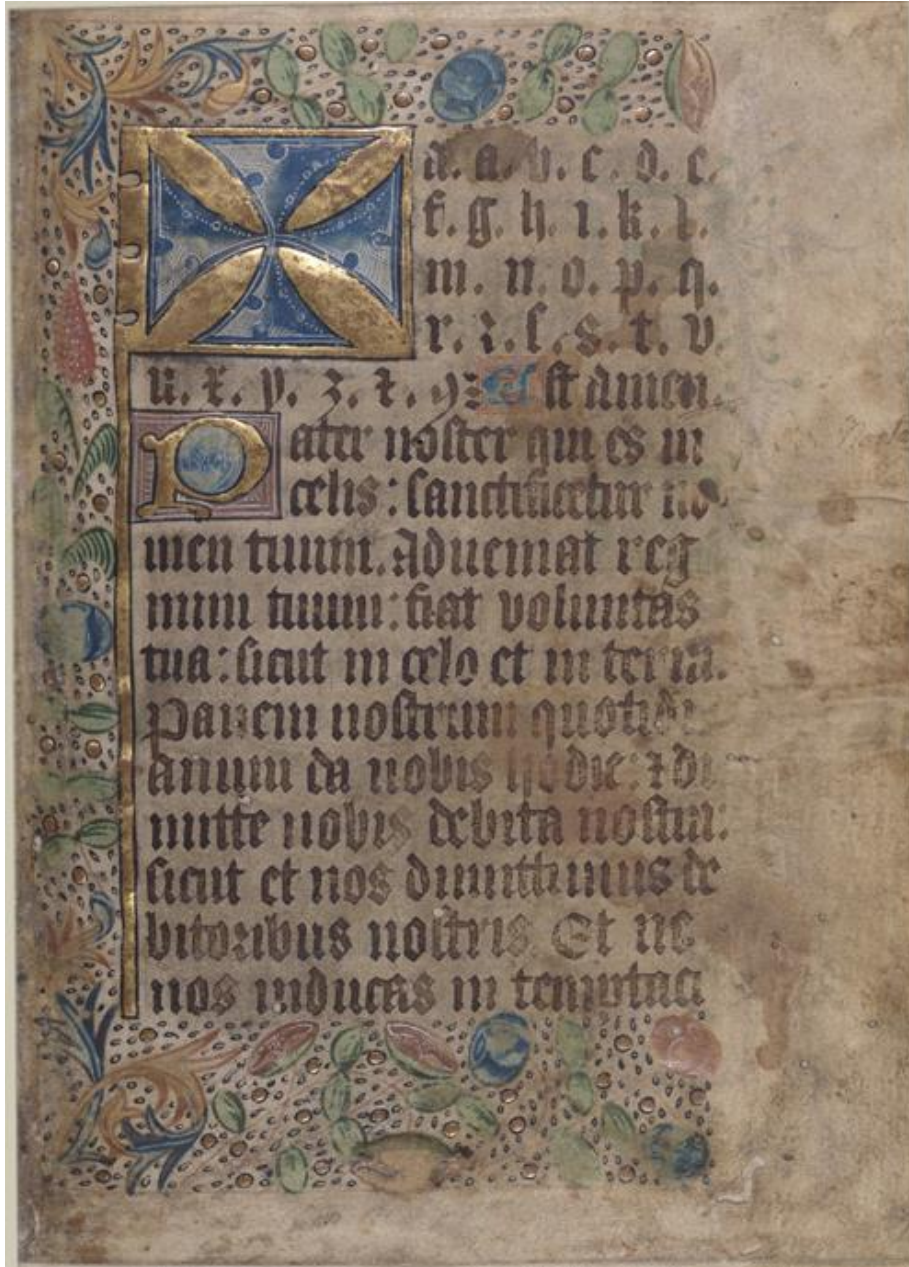 A. a. b. c. d. e.
f. g. h. i. k. l.
m. n. o. p. q.
r. ꝛ. ſ. s. t. v
u. x. y. z. ⁊. ꝯ Eſt amen.
Pater noſter qui es in
celis: ſanctificetur no
men tuum. Adueniat reg
num tuum: fiat voluntas
tua: ſicut in celo et in terra.
Panem noſtrum quotidi
anum da nobis hodie: ⁊ di
mitte nobis debita noſtra:
ſicut et nos dimittimus de
bitoribus noſtris Et ne
nos inducas in temptaci